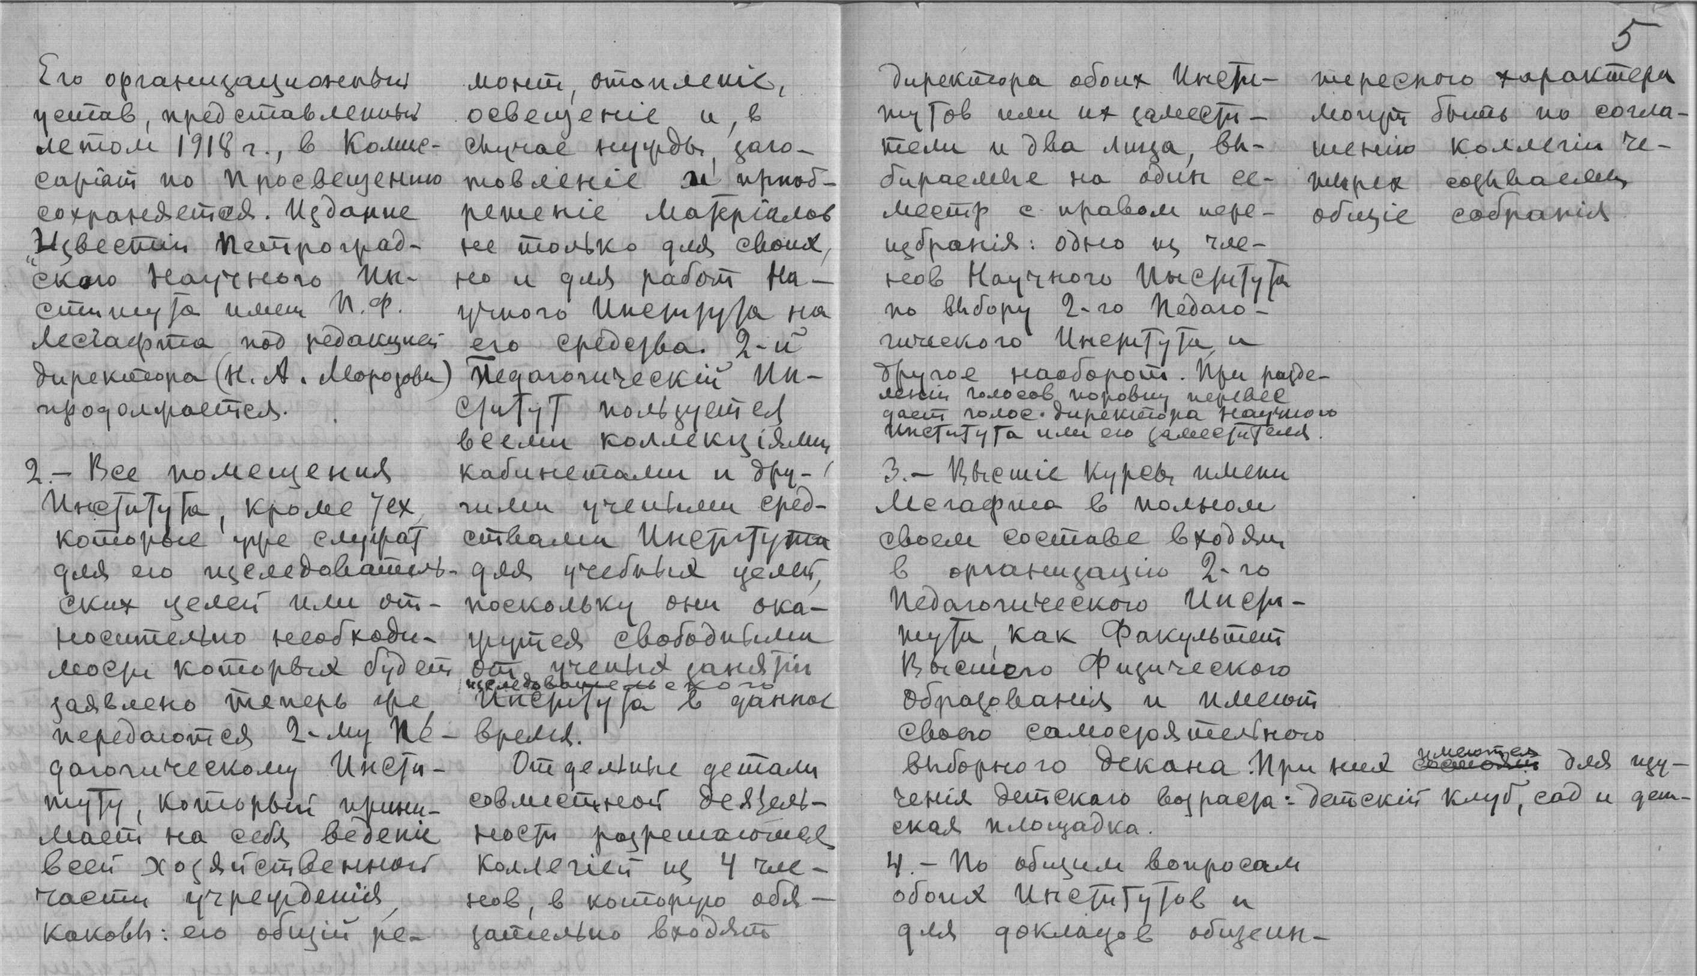 5
Его организационный
устав, представленный
летом 1918 г., в Комис-
саріат по Просвещению
сохраняется. Издание
"Известий Петроград-
ского Научного Ин-
ститута имени П. Ф.
Лесгафта под редакцией
директора (Н. А. Морозова)
продолжается.
2.- Все помещения
Института, кроме тех
которые уже служат
для его изследователь-
ских целей или от-
носительно необходи-
мости которых будет
заявлено теперь же,
передаются 2-му Пе-
дагогическому Инсти-
туту, который прини-
мает на себя веденіе
всей хозяйственной
части учрежденія,
каковы: его общій ре-
монт, отопленіе,
освещеніе и, в
случае нужды, заго-
товленіе и приоб-
ретеніе матеріалов
не только для своих,
но и для работ На-
учного Института на
его средства. 2-й
Педагогическій Ин-
ститут пользуется
всеми коллекціями,
кабинетами и дру-
гими учеными сред-
ствами Института
для учебных целей,
поскольку они ока-
жутся свободными
от ученых занятій
изследовательского
Института в данное
время.
Отдельные детали
совместной деятель-
ности разрешаются
Коллегіей из 4 чле-
нов, в которую обя-
зательно входят
директора обоих Инсти-
тутов или их замести-
тели и два лица, вы-
бираемые на один се-
местр с правом пере-
избранія: одно из чле-
нов Научного Института
по выбору 2-го Педаго-
гического Института и
другое наоборот. При разде-
леніи голосов поровну перевес
дает голос директора Научного
Института или его заместителя.
3.- Высшіе Курсы имени
Лесгафта в полном
своем составе входят
в организацію 2-го
Педагогического Инсти-
тута, как Факультет
Высшего Физического
Образованія и имеют
своего самостоятельного
выборного декана. При них имеются для изу-
ченія детскаго возраста: детскій клуб, сад и дет-
ская площадка.
4.- По общим вопросам
обоих Институтов и
для докладов общеин-
тересного характера
могут быть по согла-
шенію коллегіи че-
тырех созываемы
общіе собранія